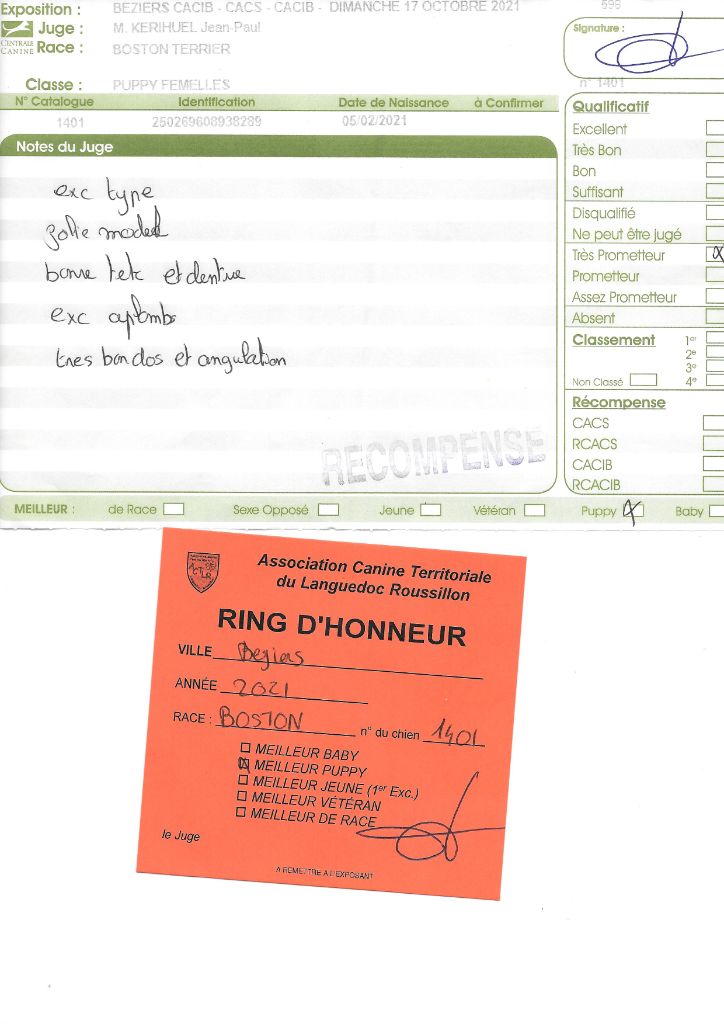 Exposition : BEZIERS CACIB - CACS - CACIB - DIMANCHE 17 OCTOBRE 2021 598
Juge : M. KERIHUEL Jean-Paul
CENTRALE CANINE Race : BOSTON TERRIER
Signature :
Classe : PUPPY FEMELLES n° 1401
N° Catalogue Identification Date de Naissance à Confirmer
1401 250269608938289 05/02/2021
Notes du Juge
exc type
jolie model
bonne tete et denture
exc aplombs
tres bon dos et angulation
RECOMPENSE
Qualificatif
Excellent
Très Bon
Bon
Suffisant
Disqualifié
Ne peut être jugé
Très Prometteur X
Prometteur
Assez Prometteur
Absent
Classement 1er
2e
3e
Non Classé 4e
Récompense
CACS
RCACS
CACIB
RCACIB
MEILLEUR : de Race Sexe Opposé Jeune Vétéran Puppy X Baby
Association Canine Territoriale
du Languedoc Roussillon
RING D'HONNEUR
VILLE Beziers
ANNÉE 2021
RACE : BOSTON n° du chien 1401
MEILLEUR BABY
X MEILLEUR PUPPY
MEILLEUR JEUNE (1er Exc.)
MEILLEUR VÉTÉRAN
MEILLEUR DE RACE
le Juge
A REMETTRE A L'EXPOSANT